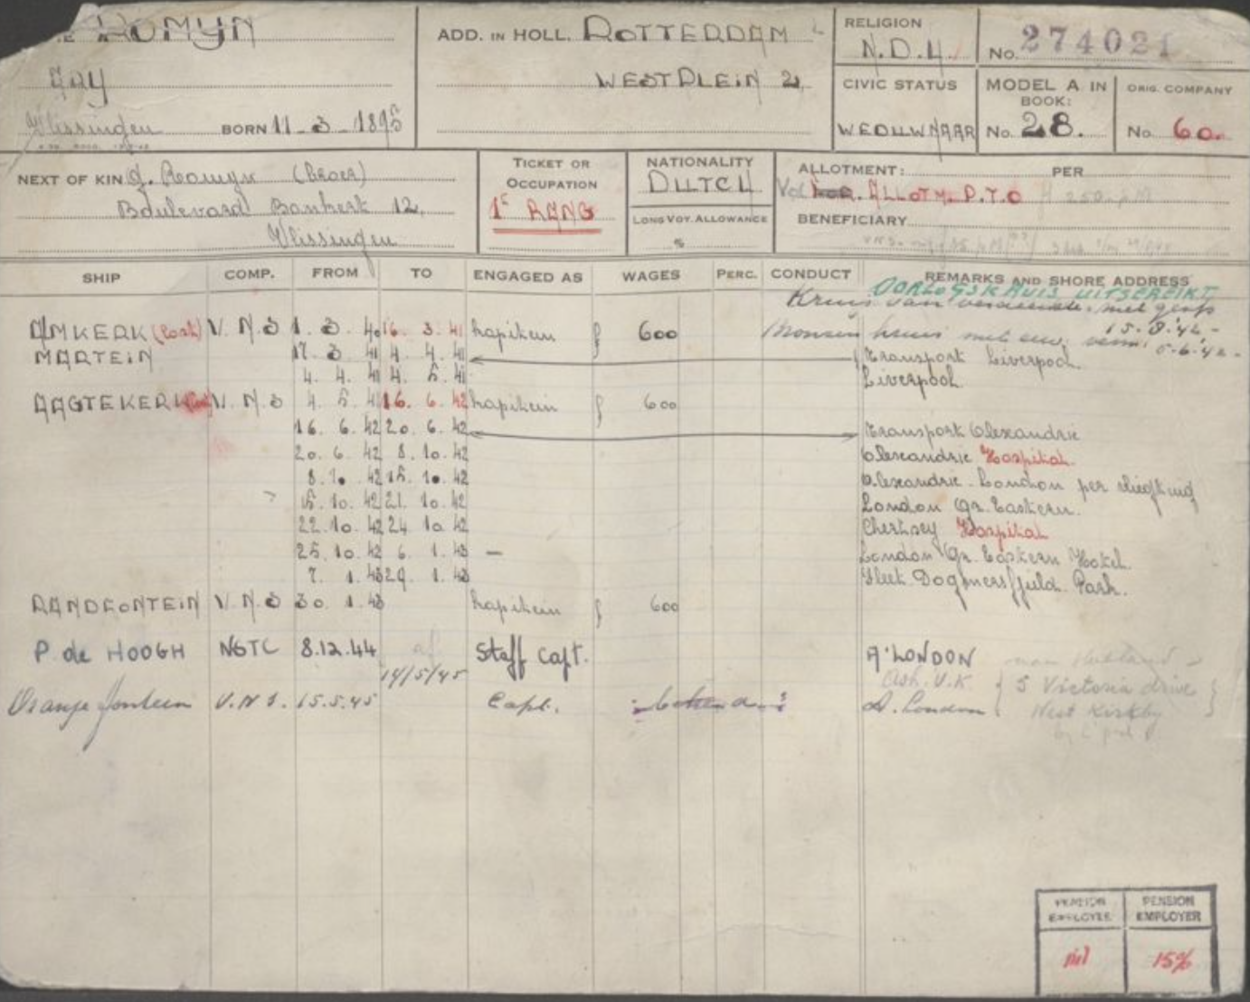 ROMYN
ARY
Vlissingen BORN 11-3-1895
ADD. IN HOLL. ROTTERDAM
WESTPLEIN 2
RELIGION
N.D.H.
No. 274021
CIVIC STATUS
WEDUWNAAR
MODEL A IN BOOK:
No. 28.
ORIG. COMPANY
No. 60.
NEXT OF KIN J. Romyn (broer)
Boulevard Bankert 12,
Vlissingen
TICKET OR OCCUPATION
1e RANG
NATIONALITY
DUTCH
LONG VOY. ALLOWANCE
%
ALLOTMENT: PER
Vol. ALLOTM. P.T.O
BENEFICIARY
SHIP COMP. FROM TO ENGAGED AS WAGES PERC. CONDUCT REMARKS AND SHORE ADDRESS
OORLOGSKRUIS UITGEREIKT
Kruis van verdienste met gesp
15.8.'42-
AMKERK (Lost) V.N.S 1.3.40 16.3.41 kapitein £ 600
5-6-'42-
MARTEIN 17.3.41 4.4.41 Transport Liverpool
4.4.41 4.5.41 Liverpool.
AAGTEKERK V.N.S 4.5.41 16.6.42 kapitein £ 600
16.6.42 20.6.42 Transport Alexandrie
20.6.42 8.10.42 Alexandrie Hospital.
8.10.42 15.10.42 Alexandrie-London per vliegtuig
15.10.42 21.10.42 London Gr. Eastern.
22.10.42 24.10.42 Chertsey Hospital
25.10.42 6.1.43 — London Gr. Eastern Hotel.
7.1.43 29.1.43 Fleet. Dogmersfield Park.
RANDFONTEIN V.N.S 30.1.43 kapitein £ 600
P. de HOOGH NGTC 8.12.44 Staff Capt. A'LONDON
14/5/45 U.K.
Oranjefontein V.N.S. 15.5.45 Capt. A. London
5 Victoria drive
West Kirkby
PENSION EMPLOYEE
nil
PENSION EMPLOYER
15%